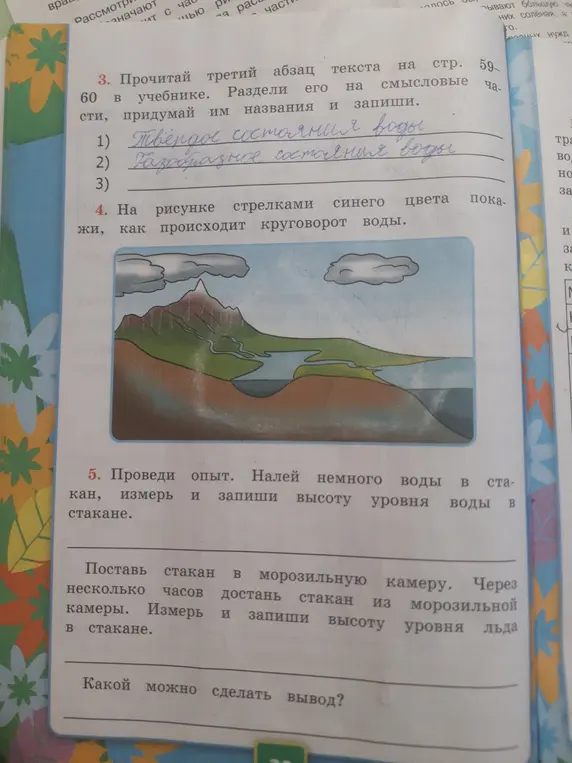 3. Прочитай третий абзац текста на стр. 59–
60 в учебнике. Раздели его на смысловые ча-
сти, придумай им названия и запиши.
1) Твёрдое состояния воды
2) Газобразное состояния воды
3)
4. На рисунке стрелками синего цвета пока-
жи, как происходит круговорот воды.
5. Проведи опыт. Налей немного воды в ста-
кан, измерь и запиши высоту уровня воды в
стакане.
Поставь стакан в морозильную камеру. Через
несколько часов достань стакан из морозильной
камеры. Измерь и запиши высоту уровня льда
в стакане.
Какой можно сделать вывод?